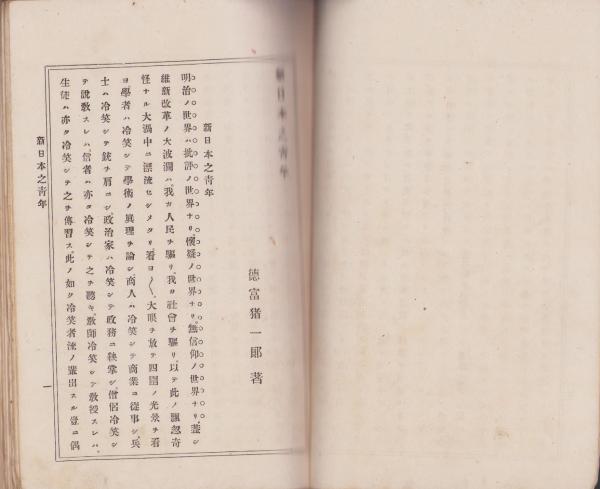 新日本之青年
德富猪一郎 著
新日本之青年
明治ノ世界ハ批評ノ世界ナリ、懷疑ノ世界ナリ、無信仰ノ世界ナリ、蓋シ
維新改革ノ大波瀾ハ、我カ人民ヲ驅リ、我カ社會ヲ驅リ、以テ此ノ飄忽奇
怪ナル大渦中ニ漂流セシメタリ、看ヨ〱、大眼ヲ放テ四圍ノ光景ヲ看
ヨ、學者ハ冷笑シテ學術ノ眞理ヲ論シ、商人ハ冷笑シテ商業ニ從事シ、兵
士ハ冷笑シテ銃ヲ肩ニシ、政治家ハ冷笑シテ政務ニ鞅掌シ、僧侶冷笑シ
テ說敎スレハ、信者ハ亦タ冷笑シテ之ヲ聽キ、敎師冷笑シテ敎授スレハ、
生徒ハ亦タ冷笑シテ之ヲ傳習ス、此ノ如ク冷笑者流ノ輩出スル豈ニ偶
新日本之靑年
一